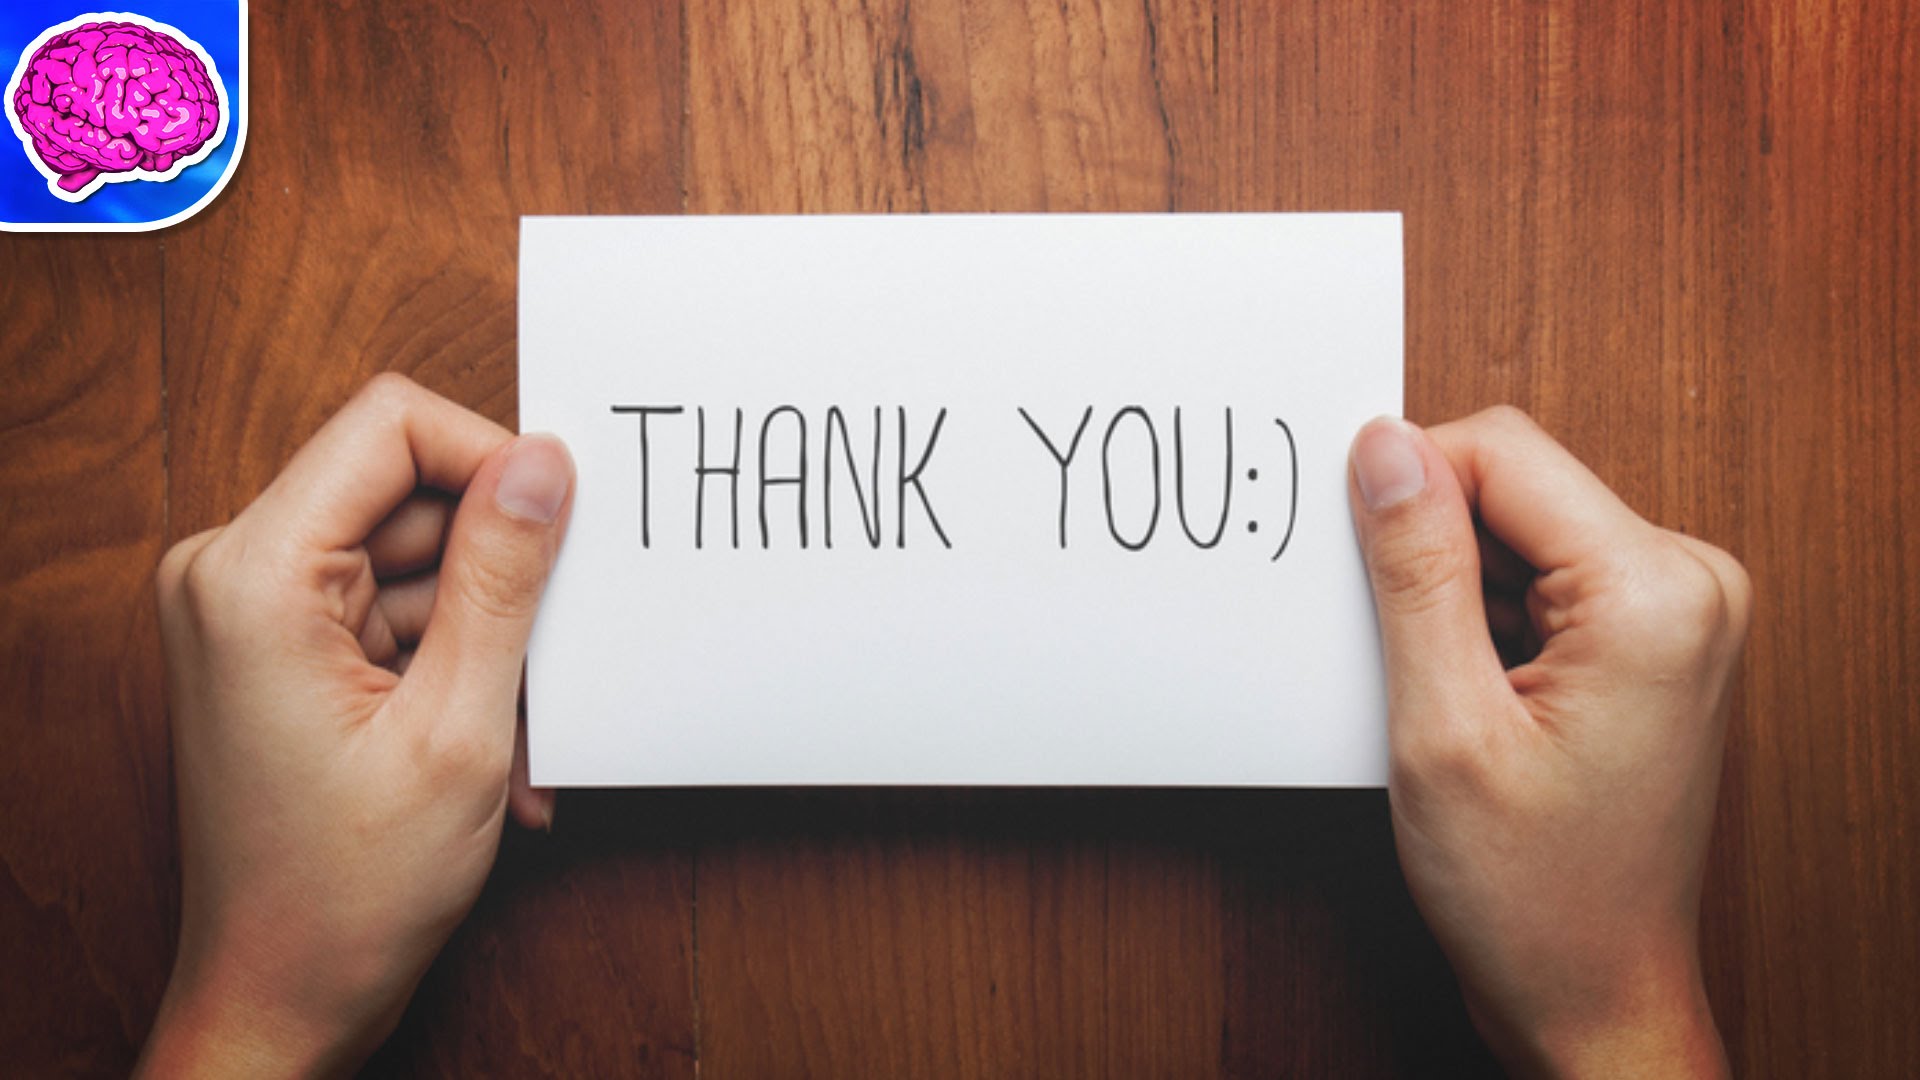 THANK YOU:)